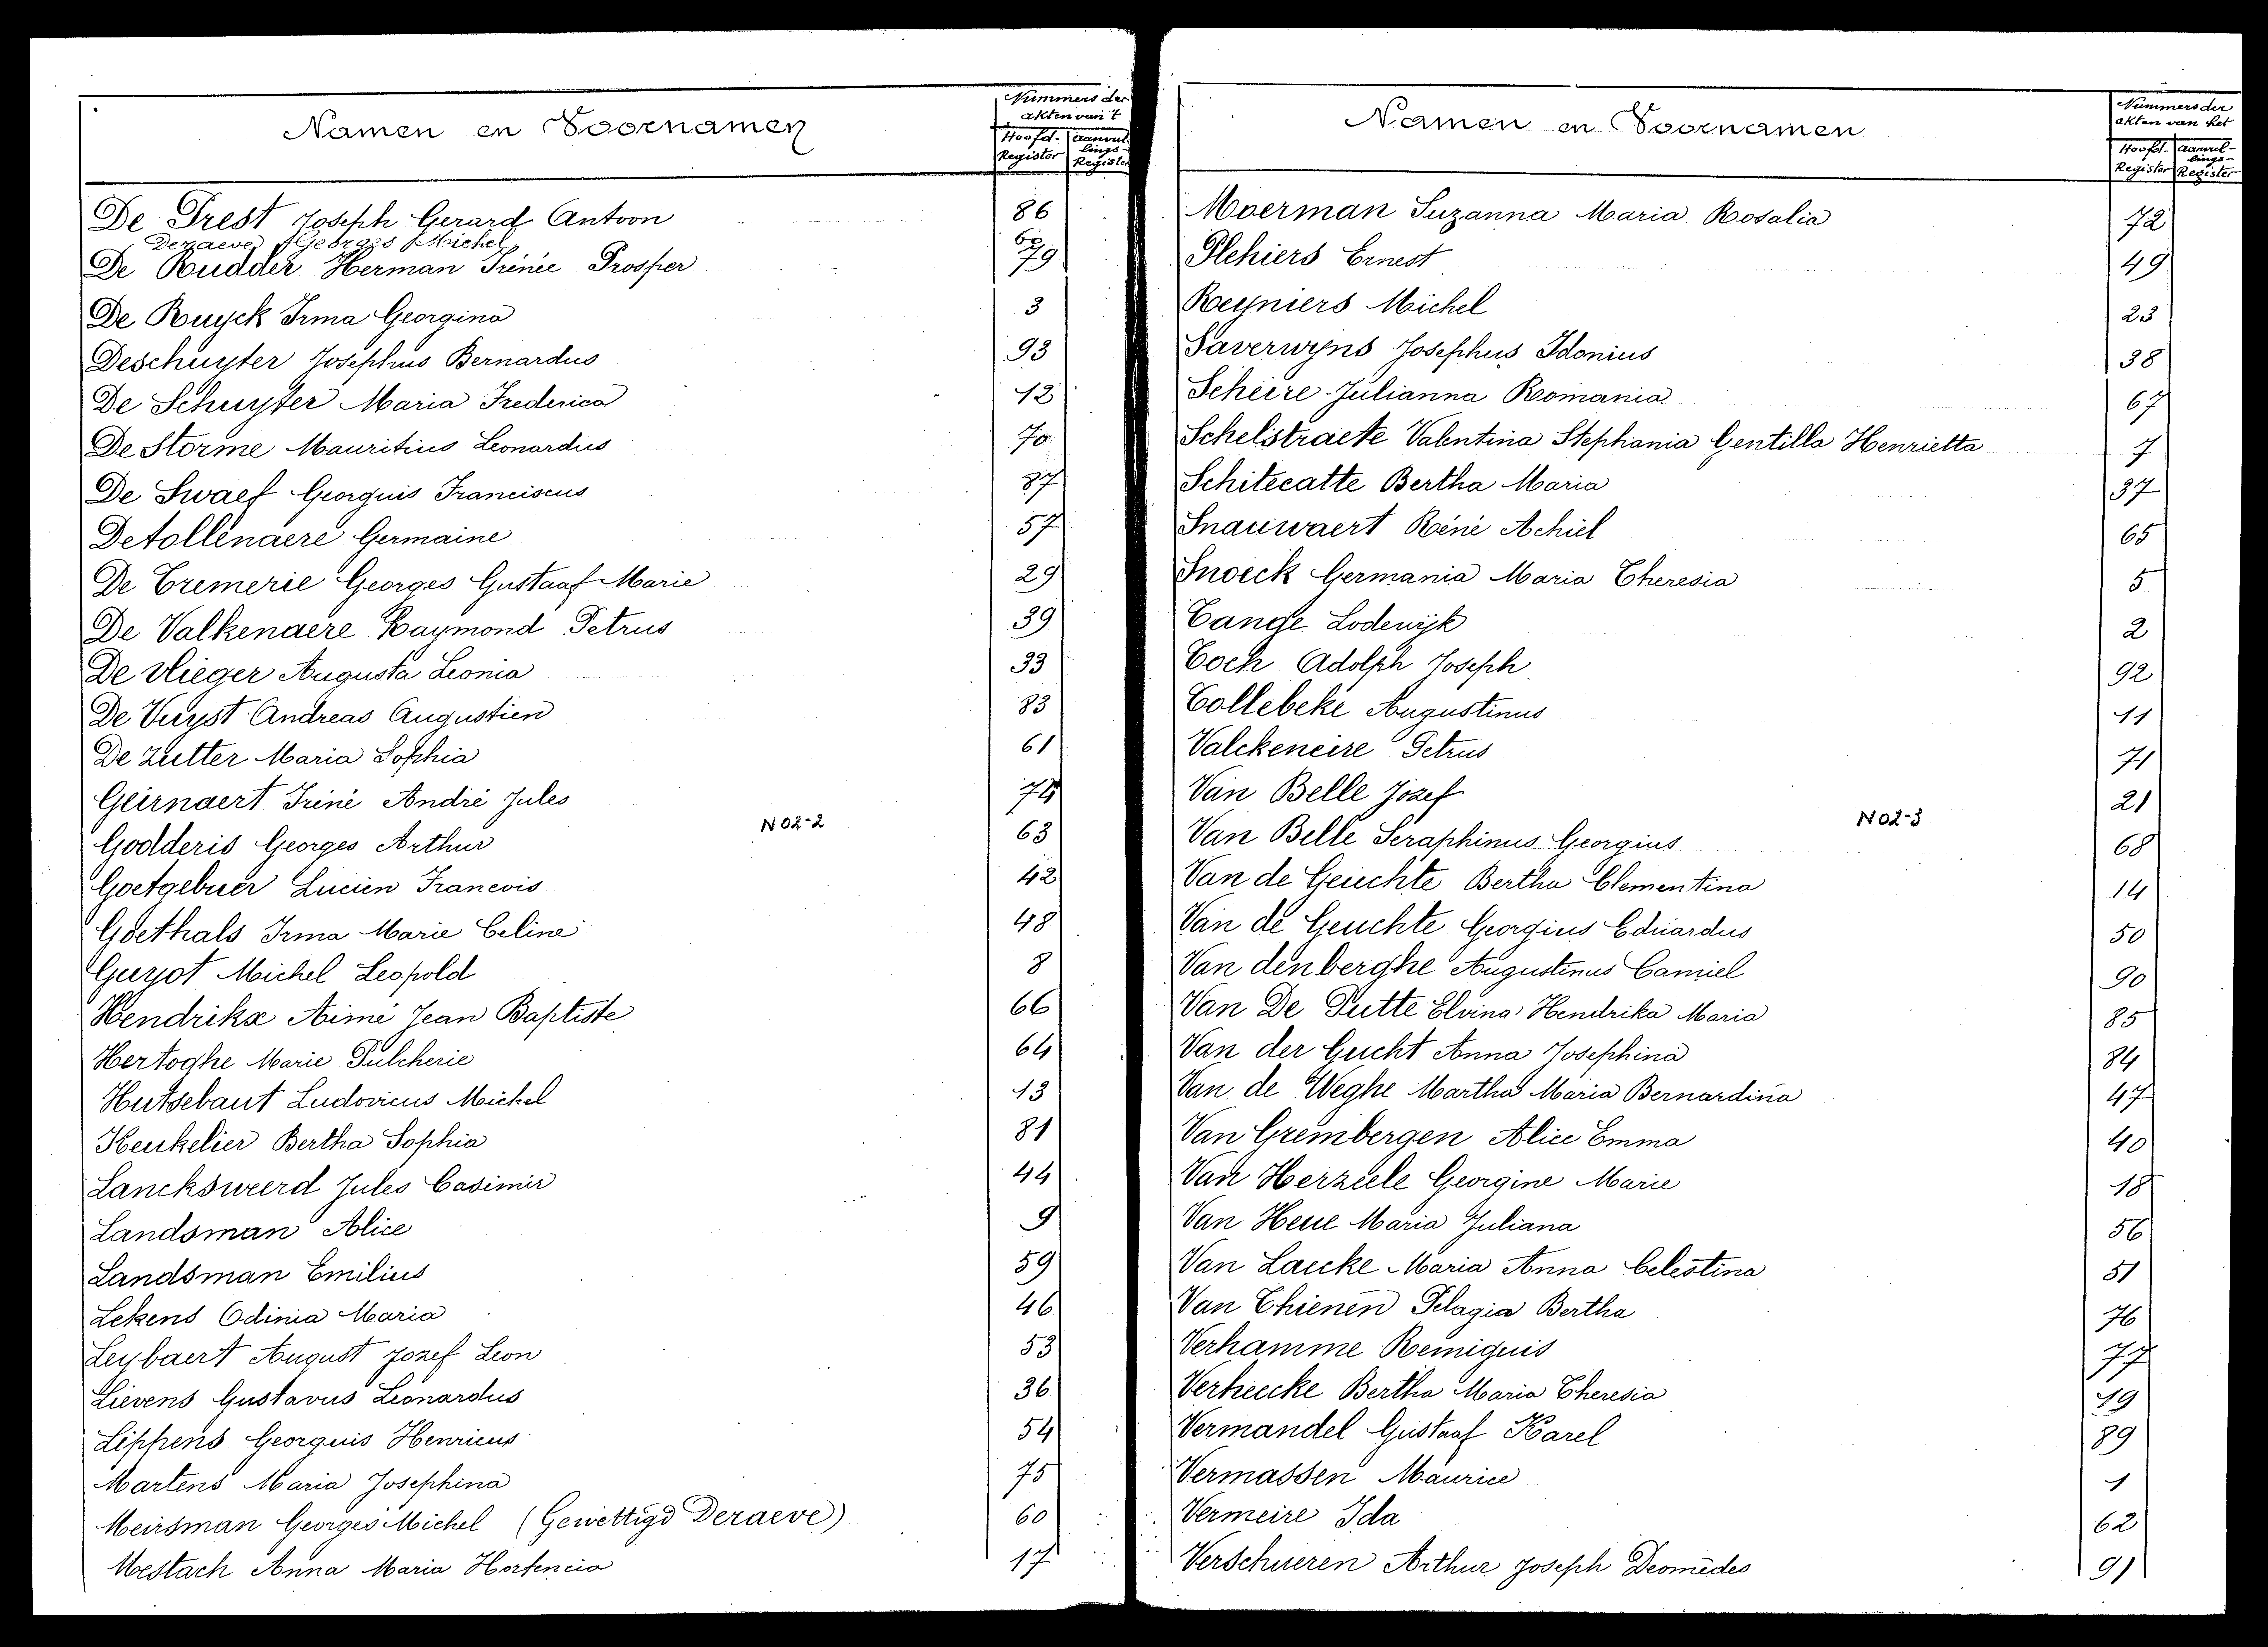 Namen en Voornamen
Nummers der akten van 't
Hoofd-Register
aanvullings-Register
De Prest Joseph Gerard Antoon 86
Deraeve Georges Michel 60
De Rudder Herman Irénée Prosper 79
De Ruyck Irma Georgina 3
Deschuyter Josephus Bernardus 93
De Schuyter Maria Frederica 12
De Storme Mauritius Leonardus 70
De Swaef Georguis Franciscus 87
Detollenaere Germaine 57
De Tremerie Georges Gustaaf Marie 29
De Valkenaere Raymond Petrus 39
De Vlieger Augusta Leonia 33
De Vuyst Andreas Augustien 83
De Zutter Maria Sophia 61
Geirnaert Iréné André Jules 74
Godderis Georges Arthur 63
Goetgebuer Lucien Francois 42
Goethals Irma Marie Celine 48
Guyot Michel Leopold 8
Hendrikx Aimé Jean Baptiste 66
Hertoghe Marie Pulcherie 64
Hutsebaut Ludovicus Michel 13
Keukelier Bertha Sophia 81
Lancksweerd Jules Casimir 44
Landsman Alice 9
Landsman Emilius 59
Lekens Odinia Maria 46
Leybaert August Jozef Leon 53
Lievens Gustavus Leonardus 36
Lippens Georguis Henricus 54
Martens Maria Josephina 75
Meirsman Georges Michel (Gewettigd Deraeve) 60
Mestach Anna Maria Hortencia 17
N02-2
Namen en Voornamen
Nummers der akten van het
Hoofd-Register
aanvullings-Register
Moerman Suzanna Maria Rosalia 72
Plehiers Ernest 49
Reyniers Michel 23
Saverwyns Josephus Idonius 38
Scheire Julianna Romania 67
Schelstraete Valentina Stephania Gentilla Henrietta 7
Schitecatte Bertha Maria 37
Snauwaert Réné Achiel 65
Snoeck Germania Maria Theresia 5
Tange Lodewijk 2
Toch Adolph Joseph 92
Tollebeke Augustinus 11
Valckeneire Petrus 71
Van Belle Jozef 21
Van Belle Seraphinus Georgius 68
Van de Geuchte Bertha Clementina 14
Van de Geuchte Georgius Eduardus 50
Van denberghe Augustinus Camiel 90
Van De Putte Elvina Hendrika Maria 85
Van der Gucht Anna Josephina 84
Van de Weghe Martha Maria Bernardina 47
Van Grembergen Alice Emma 40
Van Herzeele Georgine Marie 18
Van Heue Maria Juliana 56
Van Laecke Maria Anna Celestina 51
Van Thienen Pelagia Bertha 76
Verhamme Remiguis 77
Verheecke Bertha Maria Theresia 19
Vermandel Gustaaf Karel 89
Vermassen Maurice 1
Vermeire Ida 62
Verschueren Arthur Joseph Deomedes 91
N02-3